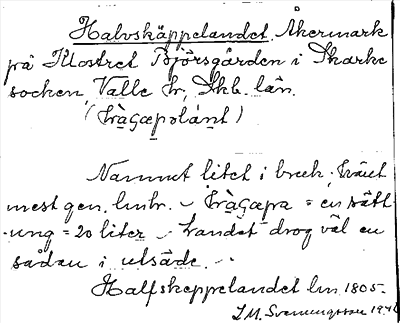 Halvskäppelandet. Åkermark
på Klostret Björsgården i Skarke
socken, Valle hr, Skb. län.
Namnet litet i bruk.
mest gen. lmtr. = en sätt-
ung = 20 liter. Landet drog väl en
sådan i utsäde.
Halfskeppelandet lm. 1805.
I.M. Svenungsson 194